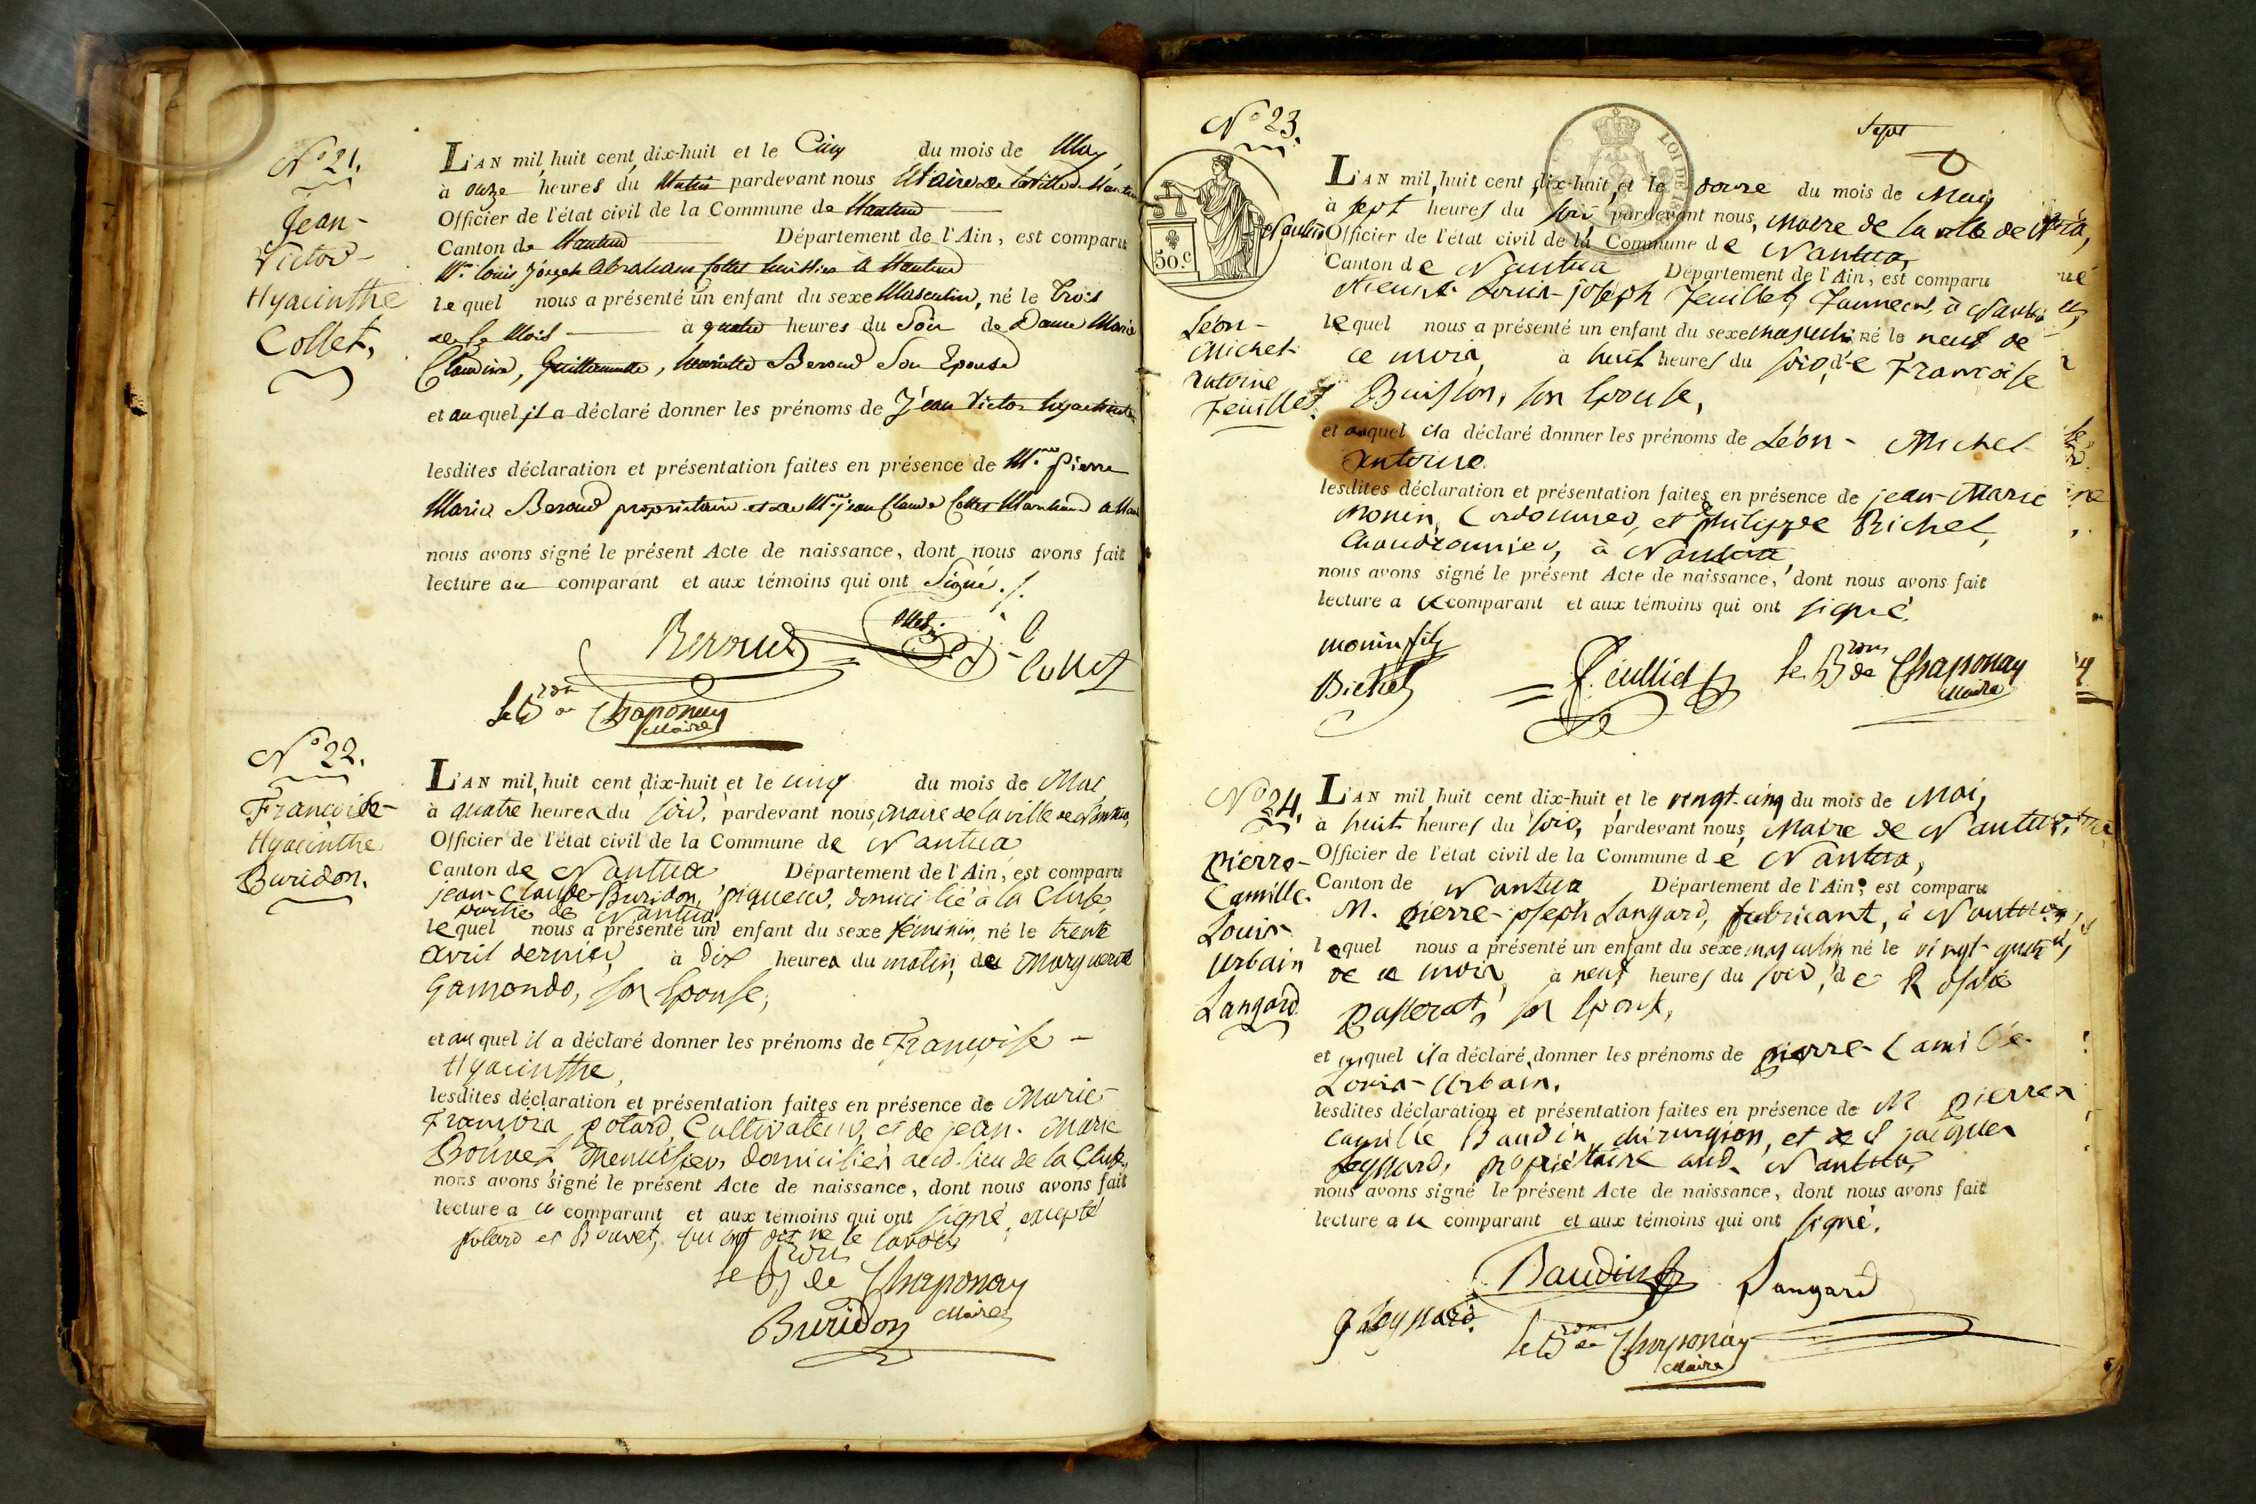 N° 21.
Jean-
Victor-
Hyacinthe
Collet,
L'AN mil huit cent dix-huit et le Cinq du mois de May
à onze heures du Matin pardevant nous Maire de la Ville de Nantua
Officier de l'état civil de la Commune de Nantua
Canton de Nantua Département de l'Ain, est comparu
Mr. Louis Joseph Abraham Collet huissier à Nantua
lequel nous a présenté un enfant du sexe Masculin, né le Trois
de ce Mois à quatre heures du Soir de Dame Marie
Claudine, Guillemette, henriette Beroud Son Epouse
et auquel il a déclaré donner les prénoms de Jean Victor hyacinthe
lesdites déclaration et présentation faites en présence de Mrs. Pierre
Marie Beroud propriétaire et de Mr. jean Claude Collet Marchand à Nan
nous avons signé le présent Acte de naissance, dont nous avons fait
lecture au comparant et aux témoins qui ont Signé ./.
Beroud Collet
le Bon de Chaponay
Maire
N° 22.
Francoise-
Hyacinthe
Buridon.
L'AN mil huit cent dix-huit et le cinq du mois de Mai,
à quatre heures du soir, pardevant nous, Maire de la ville de Nantua,
Officier de l'état civil de la Commune de Nantua
Canton de Nantua Département de l'Ain, est comparu
jean-Claude Buridon, piqueur, domicilié à la Cluse,
partie de Nantua,
lequel nous a présenté un enfant du sexe féminin, né le trente
avril dernier, à dix heures du matin, de Marguerite
Gamondo, son Epouse,
et auquel il a déclaré donner les prénoms de Francoise-
Hyacinthe,
lesdites déclaration et présentation faites en présence de Marie-
Francois polard, Cultivateur, et de jean-Marie
Bouvet, Menuisier, domiciliés aud. lieu de la Cluse,
nous avons signé le présent Acte de naissance, dont nous avons fait
lecture a ce comparant et aux témoins qui ont signé, excepté
polard et Bouvet, qui ont dit ne le savoir
le Bon de Chaponay
Maire
Buridon
N° 23.
Nantua
50.c
Léon-
Michel-
antoine
Feuillet.
LOI DE
Sept
L'AN mil huit cent dix-huit, et le douze du mois de Mai,
à sept heures du soir pardevant nous, Maire de la ville de
Officier de l'état civil de la Commune de Nantua,
Canton de Nantua Département de l'Ain, est comparu
sieur Louis-joseph Feuillet, Tanneur, à Nantua
lequel nous a présenté un enfant du sexe masculin né le neuf de
ce mois, à huit heures du soir, de Francoise
Buisson, son Epouse,
et auquel il a déclaré donner les prénoms de Léon-Michel-
antoine.
lesdites déclaration et présentation faites en présence de jean-Marie
Monin, Cordonnier, et philippe Bichet,
Chaudronnier, à Nantua,
nous avons signé le présent Acte de naissance, dont nous avons fait
lecture a ce comparant et aux témoins qui ont signé.
monin fils
Bichet Feuillet le Bon de Chaponay
Maire
N° 24.
pierre-
Camille-
Louis-
Urbain
Langard
L'AN mil huit cent dix-huit et le vingt-cinq du mois de Mai,
à huit heures du soir, pardevant nous, Maire de Nantua,
Officier de l'état civil de la Commune de Nantua,
Canton de Nantua Département de l'Ain, est comparu
M. pierre-joseph Langard, fabricant, à Nantua,
lequel nous a présenté un enfant du sexe masculin né le vingt-quatre
de ce mois, à neuf heures du soir, de Rosalie
passerat, son Epouse,
et auquel il a déclaré donner les prénoms de pierre-Camille-
Louis-Urbain.
lesdites déclaration et présentation faites en présence de M. pierre
Camille Baudin, chirurgien, et de jacques
Reynard, propriétaire aud. Nantua,
nous avons signé le présent Acte de naissance, dont nous avons fait
lecture a ce comparant et aux témoins qui ont signé.
Baudin Langard
le Bon de Chaponay
Maire